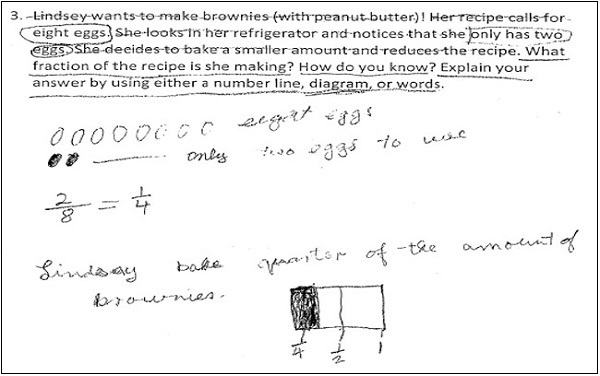 3. Lindsey wants to make brownies (with peanut butter)! Her recipe calls for
eight eggs. She looks in her refrigerator and notices that she only has two
eggs. She decides to bake a smaller amount and reduces the recipe. What
fraction of the recipe is she making? How do you know? Explain your
answer by using either a number line, diagram, or words.
eight eggs
only two eggs to use
2/8 = 1/4
Lindsay bake quarter of the amount of
brownies.
1/4 1/2 1